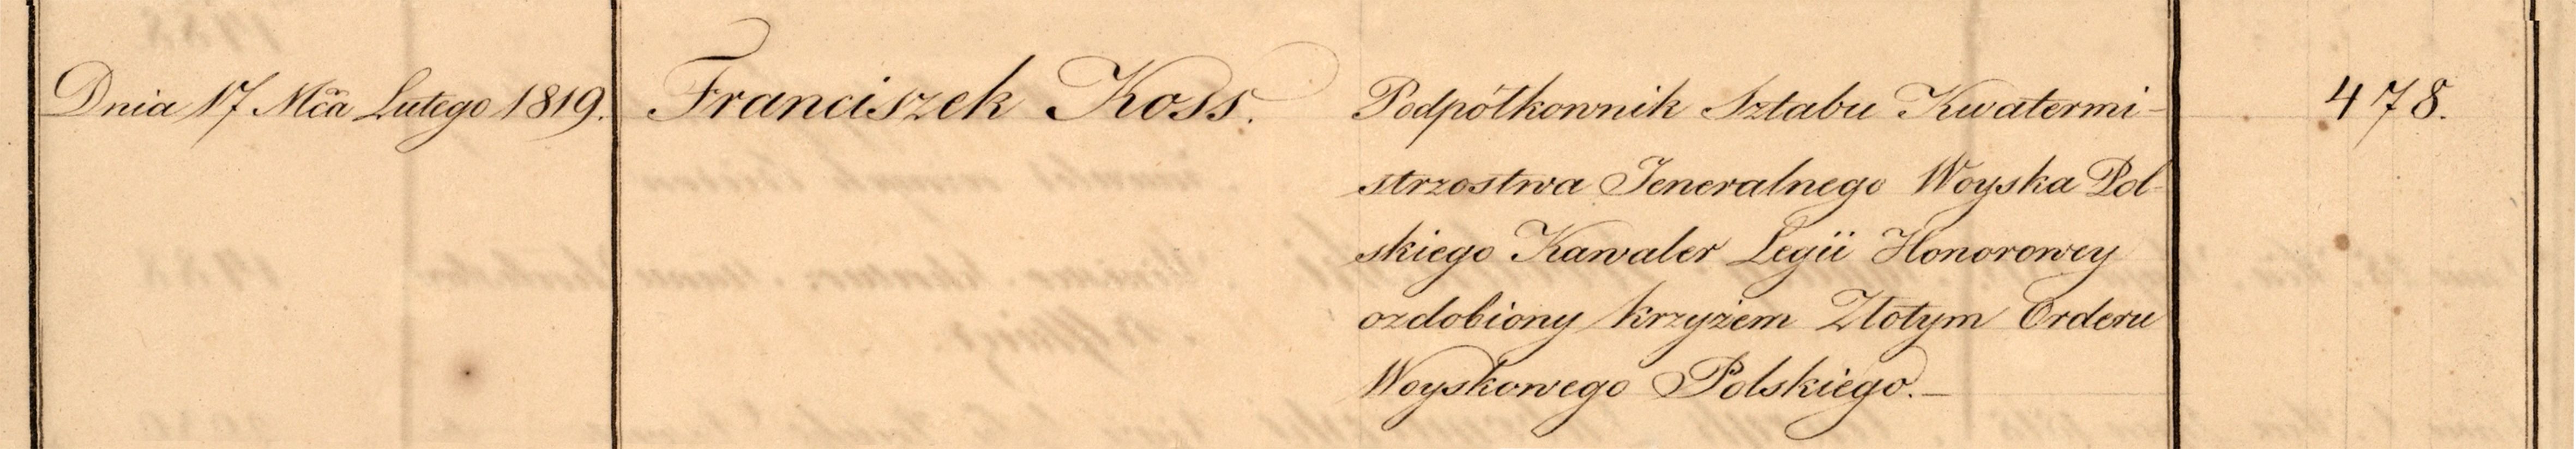 Dnia 17 Mca Lutego 1819. Franciszek Koss. Podpółkownik Sztabu Kwatermi- 478.
strzostwa Jeneralnego Woyska Pol-
skiego Kawaler Legii Honorowey
ozdobiony krzyżem Złotym Orderu
Woyskowego Polskiego.—